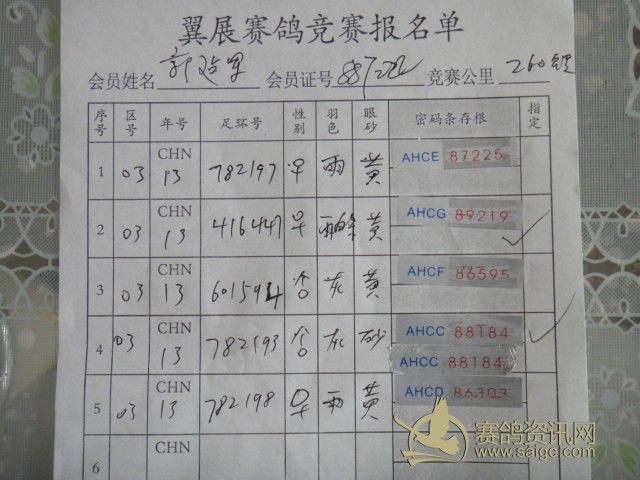 翼展赛鸽竞赛报名单
会员姓名 会员证号 竞赛公里 260
序号 区号 年号 足环号 性别 羽色 眼砂 密码条存根 指定
1 03 CHN 13 782197 雨 黄 AHCE 87225
2 03 CHN 13 416447 黄 AHCG 89219 ✓
3 03 CHN 13 601594 灰 黄 AHCF 86595
4 03 CHN 13 782193 灰 砂 AHCC 88184 ✓
AHCC 88184
5 03 CHN 13 782198 雨 黄 AHCD 86303
6 CHN
赛鸽资讯网
www.saige.com